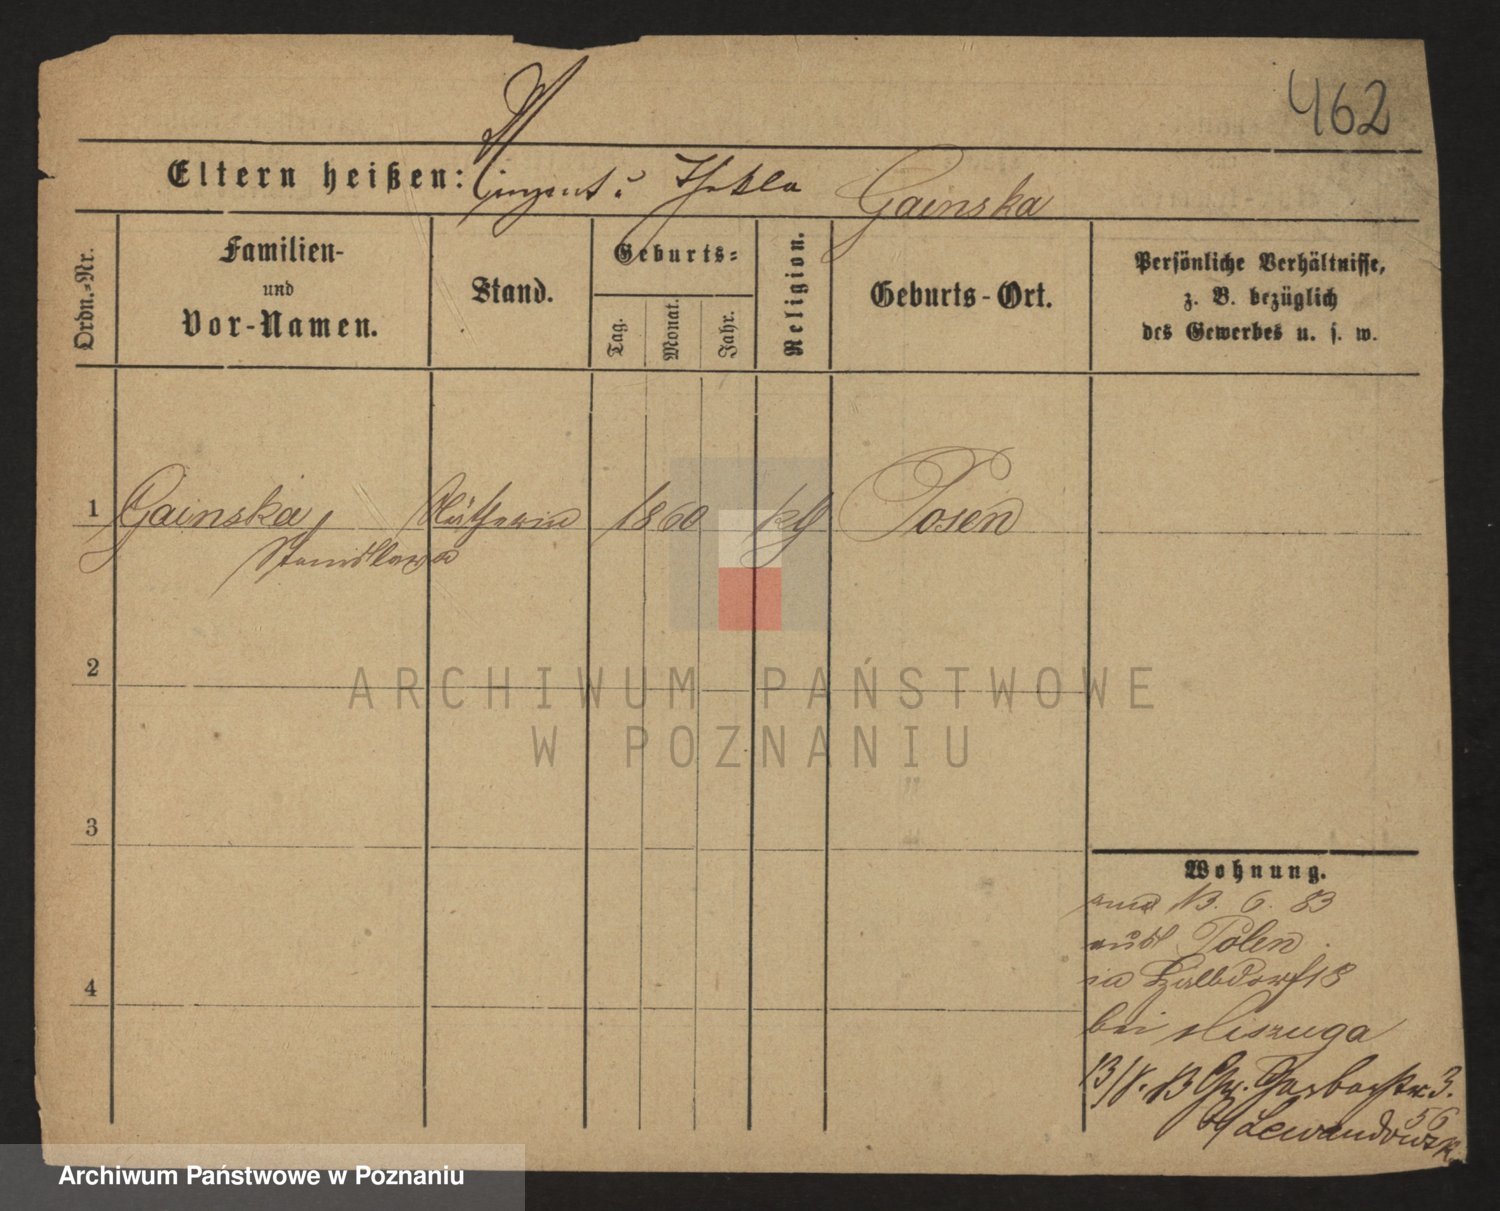 462
Eltern heißen: Vinzent u. Thekla Gainska
Ordn.-Nr.
Familien-
und
Vor-Namen.
Stand.
Geburts-
Tag.
Monat.
Jahr.
Religion.
Geburts-Ort.
Persönliche Verhältnisse,
z. B. bezüglich
des Gewerbes u. s. w.
1 Gainska, 1860 kth Posen
Stanislawa
2
ARCHIWUM PAŃSTWOWE
W POZNANIU
3
Wohnung.
13. 6. 83
aus Polen
4
in Halbdorf 18
bei
13/8. 83 Gr. Gerberstr. 3.
56
Lewandowsk
Archiwum Państwowe w Poznaniu